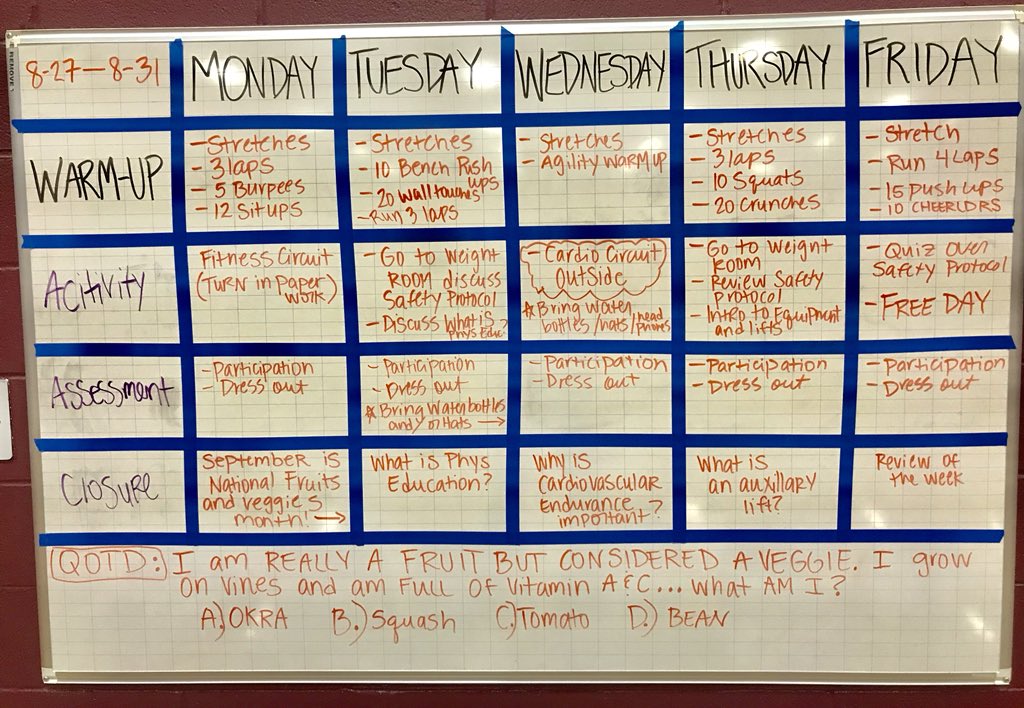 8-27—8-31
MONDAY
TUESDAY
WEDNESDAY
THURSDAY
FRIDAY
WARM-UP
- Stretches
- 3 laps
- 5 Burpees
- 12 Situps
- Stretches
- 10 Bench Push
ups
- 20 wall touches
- Run 3 laps
- Stretches
- Agility warm up
- Stretches
- 3 laps
- 10 Squats
- 20 Crunches
- Stretch
- Run 4 Laps
- 15 Push ups
- 10 CHEERLDRS
Acitivity
Fitness Circuit
(Turn in paper
work)
- Go to Weight
Room discuss
Safety Protocol
- Discuss what is
Phys Educ?
- Cardio Circuit
Outside
* Bring Water
bottles/hats/head
phones
- Go to Weight
Room
- Review Safety
protocol
- Intro to Equipment
and lifts
- Quiz over
Safety Protocol
- FREE DAY
Assessment
- Participation
- Dress out
- Participation
- Dress out
* Bring Water bottles
and/or Hats →
- Participation
- Dress out
- Participation
- Dress out
- Participation
- Dress out
Closure
September is
National Fruits
and veggies
month! →
What is Phys
Education?
Why is
Cardiovascular
Endurance
important?
What is
an auxillary
lift?
Review of
the week
QOTD: I am REALLY A FRUIT BUT CONSIDERED A VEGGIE. I grow
on vines and am full of vitamin A & C... what AM I?
A.) OKRA B.) Squash C.) Tomato D.) BEAN